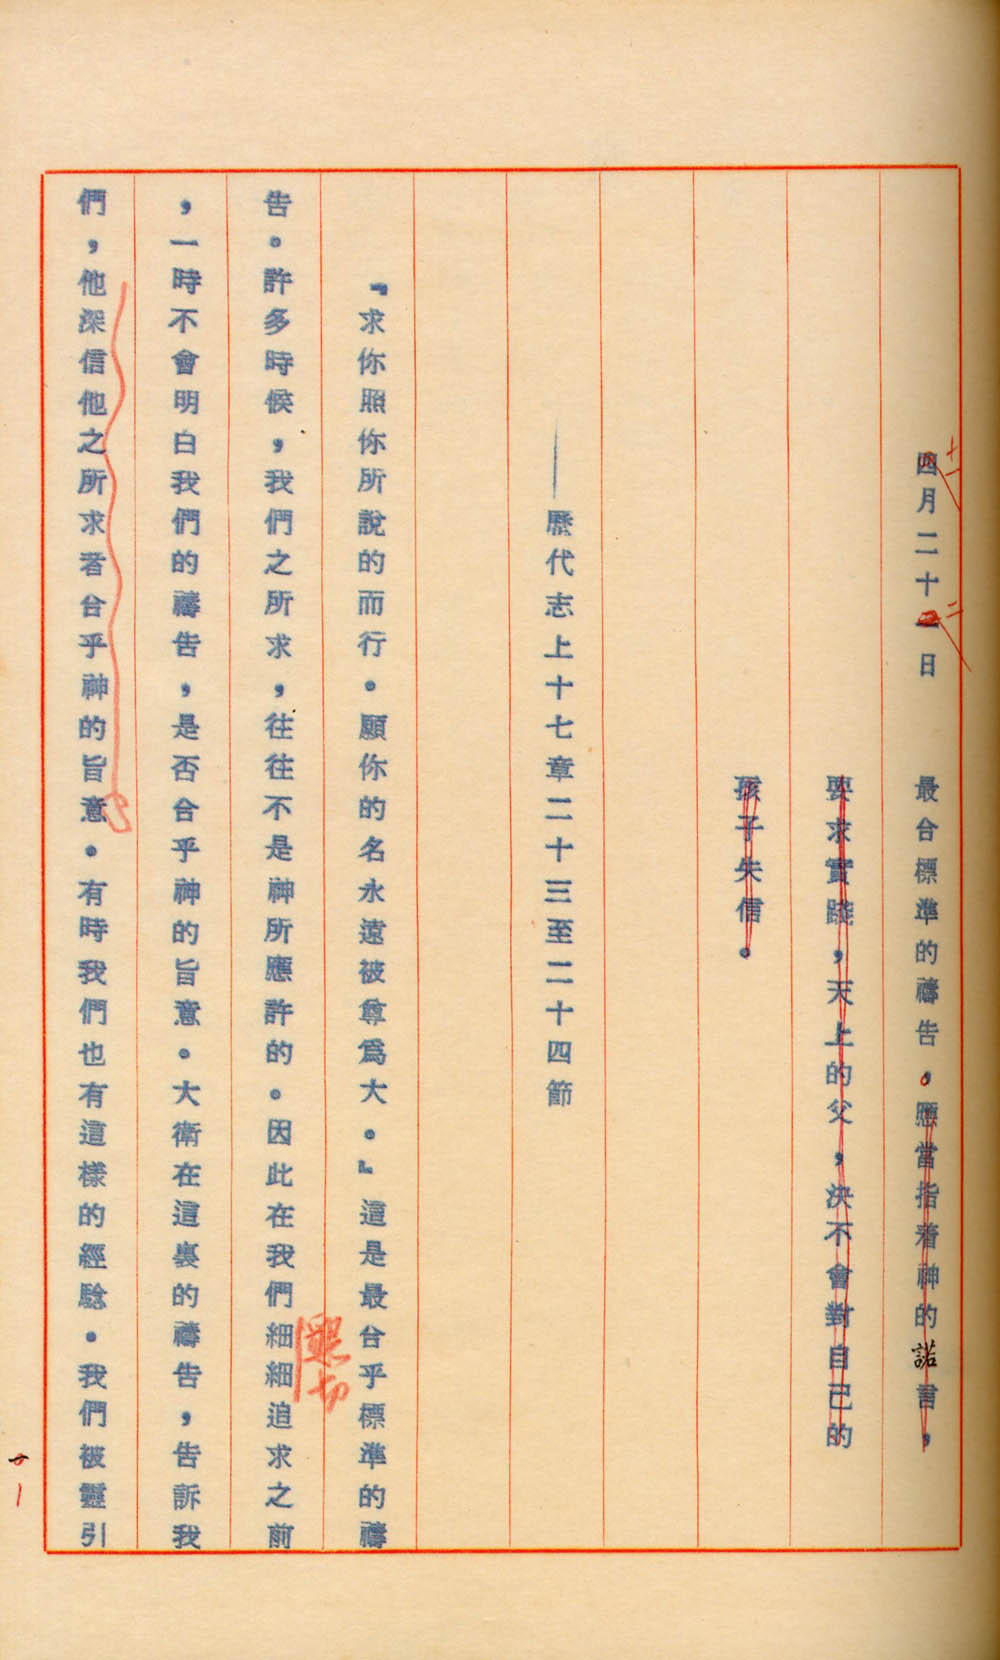 四月二十一日　最合標準的禱告，應當指着神的諾言，
十一
二
要求實踐，天上的父，決不會對自己的
孩子失信。
——歷代志上十七章二十三至二十四節
『求你照你所說的而行。願你的名永遠被尊爲大。』這是最合乎標準的禱
告。許多時候，我們之所求，往往不是神所應許的。因此在我們細細追求之前
懇切
，一時不會明白我們的禱告，是否合乎神的旨意。大衛在這裏的禱告，告訴我
們，他深信他之所求者合乎神的旨意。有時我們也有這樣的經驗。我們被靈引